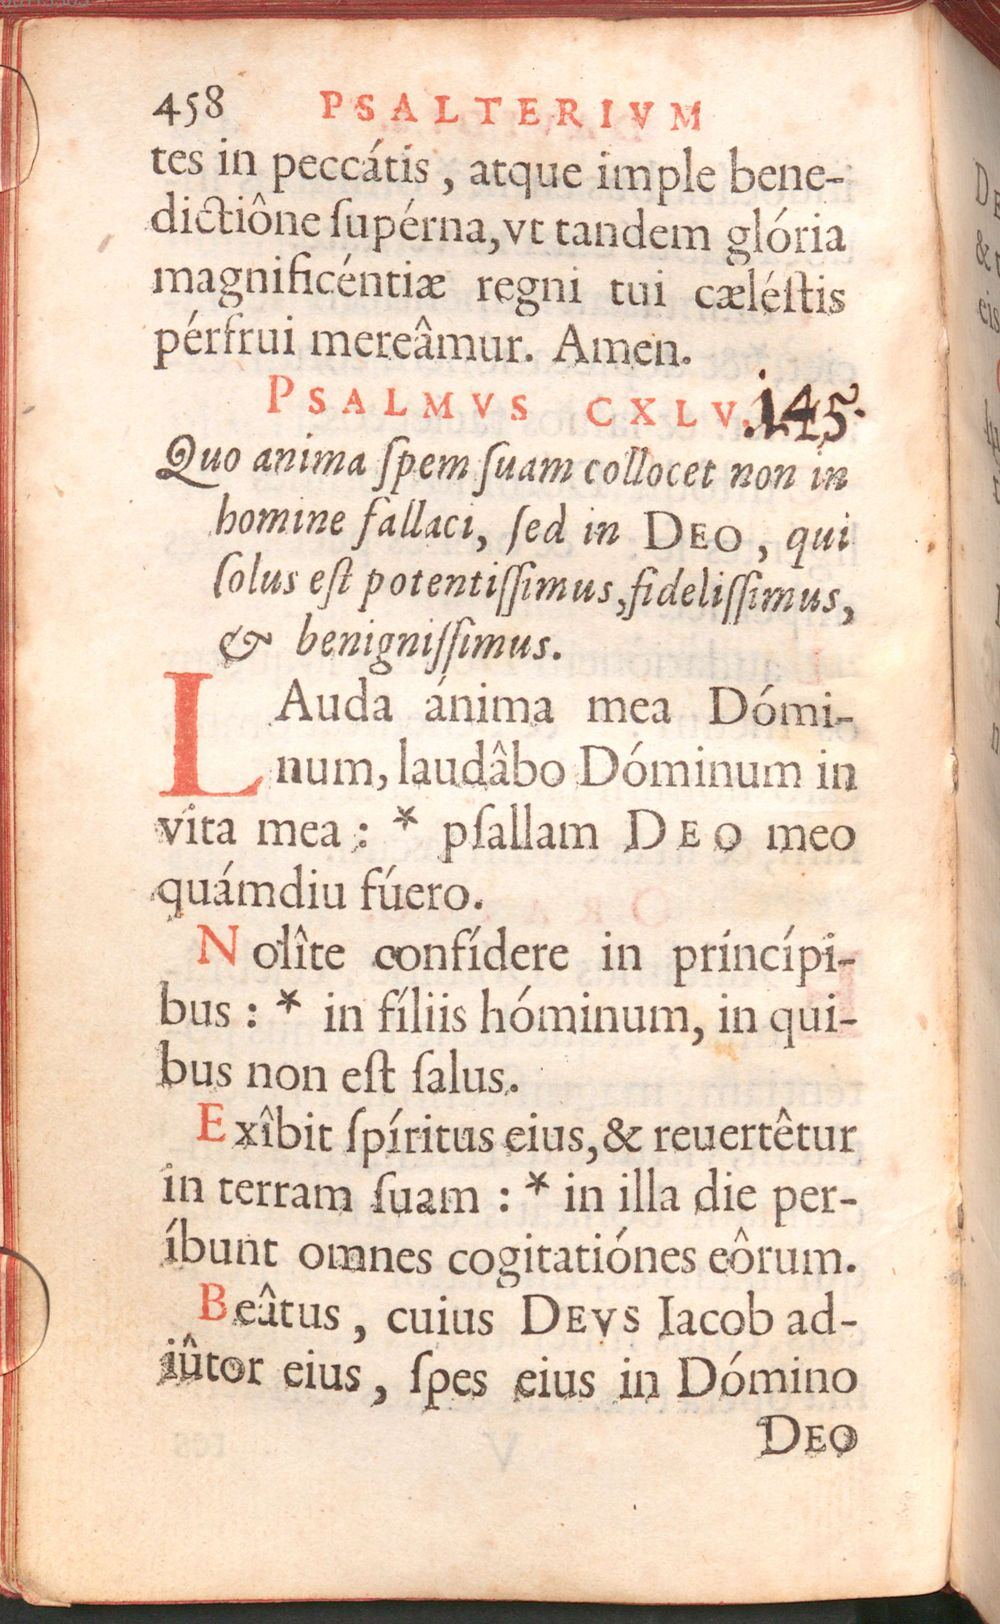 458 PSALTERIVM
tes in peccátis, atque imple bene-
dictiône ſupérna, vt tandem glória
magnificéntiæ regni tui cæléſtis
pérfrui mereâmur. Amen.
PSALMVS CXLV. 145.
Quo anima ſpem ſuam collocet non in
homine fallaci, ſed in DEO, qui
ſolus eſt potentiſſimus, fideliſſimus,
& benigniſſimus.
LAuda ánima mea Dómi-
num, laudâbo Dóminum in
vita mea: * pſallam DEO meo
quámdiu fúero.
Nolîte confídere in príncípi-
bus: * in fíliis hóminum, in qui-
bus non eſt ſalus.
Exîbit ſpíritus eius, & reuertêtur
in terram ſuam: * in illa die per-
íbunt omnes cogitatiónes eôrum.
Beâtus, cuius DEVS Iacob ad-
iûtor eius, ſpes eius in Dómino
DEO